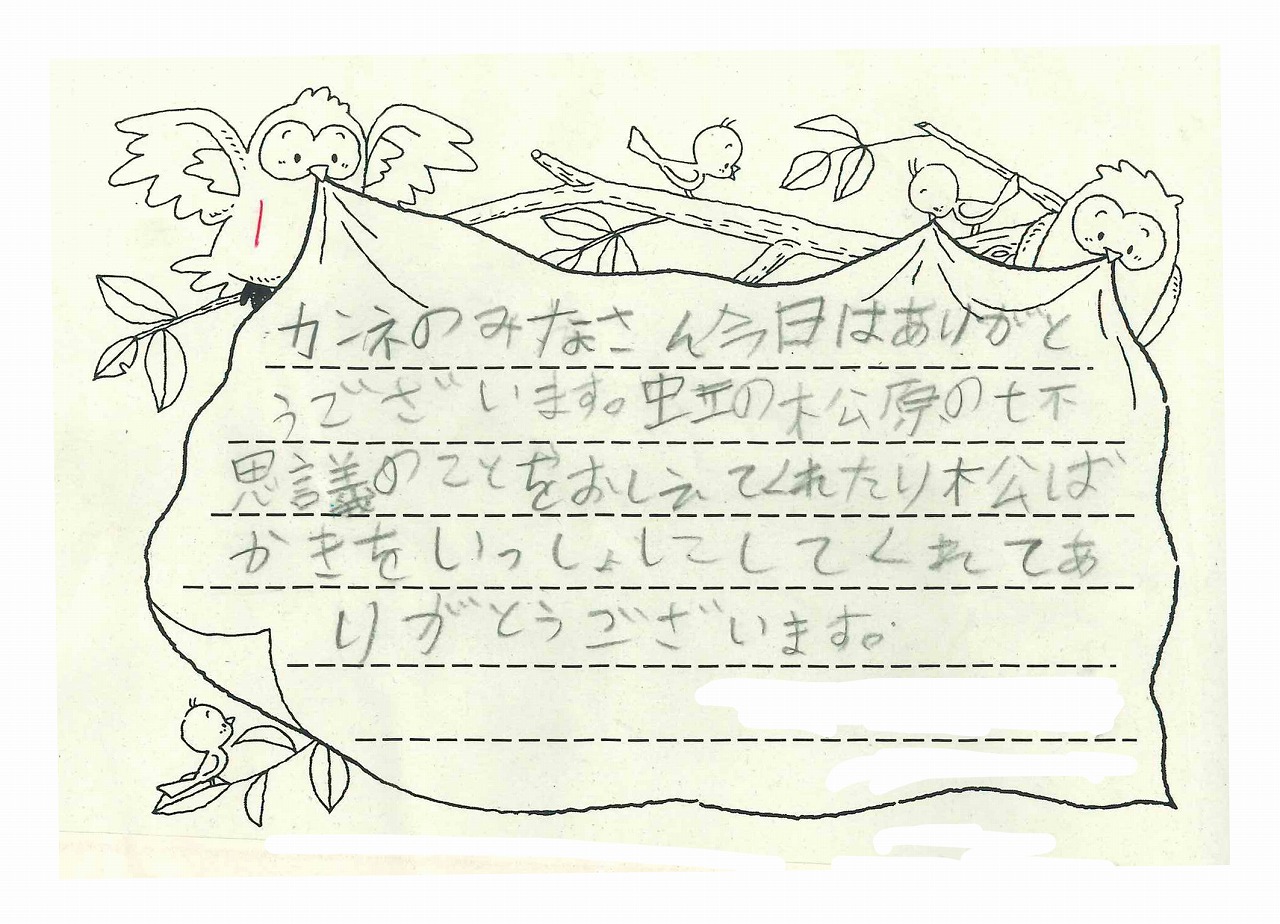 カンネのみなさん今日はありがと
うございます。虫のの松原の七不
思議のことをおしえてくれたり松ば
かきをいっしょにしてくれてあ
りがとうございます。